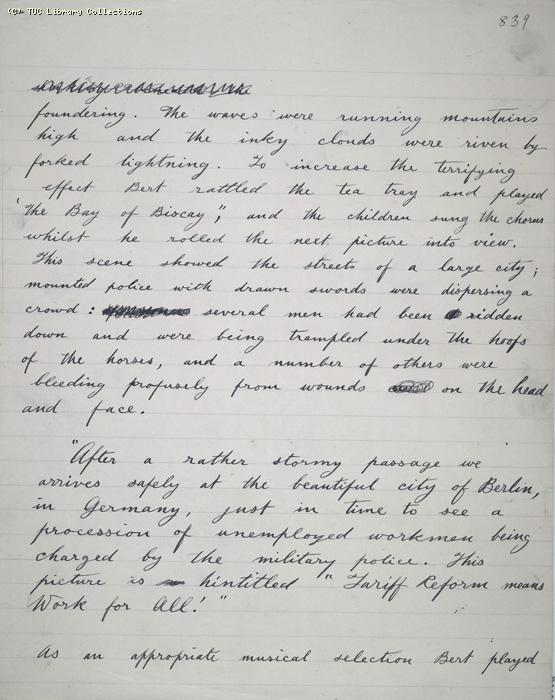 (C) TUC Library Collections
839
foundering. The waves were running mountains
high and the inky clouds were riven by
forked lightning. To increase the terrifying
effect Bert rattled the tea tray and played
'The Bay of Biscay', and the children sung the chorus
whilst he rolled the next picture into view.
This scene showed the streets of a large city;
mounted police with drawn swords were dispersing a
crowd: several men had been ridden
down and were being trampled under the hoofs
of the horses, and a number of others were
bleeding profusely from wounds on the head
and face.
"After a rather stormy passage we
arrives safely at the beautiful city of Berlin,
in Germany, just in time to see a
procession of unemployed workmen being
charged by the military police. This
picture is hintitled "Tariff Reform means
Work for All!"
As an appropriate musical selection Bert played